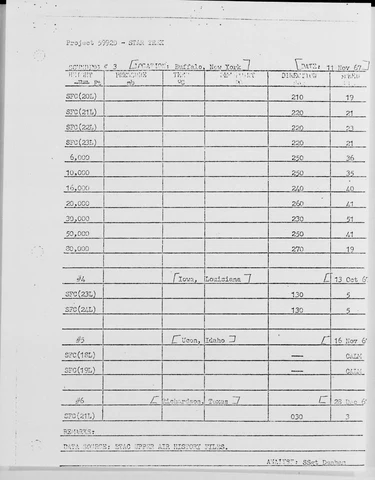 Project 5792D - STAR TREK
# 3 LOCATION: Buffalo, New York DATE: 11 Nov 67
HEIGHT PRESSURE TEMP DEW POINT DIRECTION SPEED
SFC(20L) 210 19
SFC(21L) 220 21
SFC(22L) 220 23
SFC(23L) 220 21
6,000 250 36
10,000 250 35
16,000 240 40
20,000 260 41
30,000 230 51
50,000 250 41
80,000 270 19
#4 [Iowa, Louisiana] [13 Oct 6
SFC(23L) 130 5
SFC(24L) 130 5
#5 [Ucon, Idaho] [16 Nov 6
SFC(18L) — CALM
SFC(19L) — CALM
#6 [Richardson, Texas] [28 Dec 6
SFC(21L) 030 3
REMARKS:
DATA SOURCE: ETAC UPPER AIR HISTORY FILES.
ANALYST: SSgt Dunbar